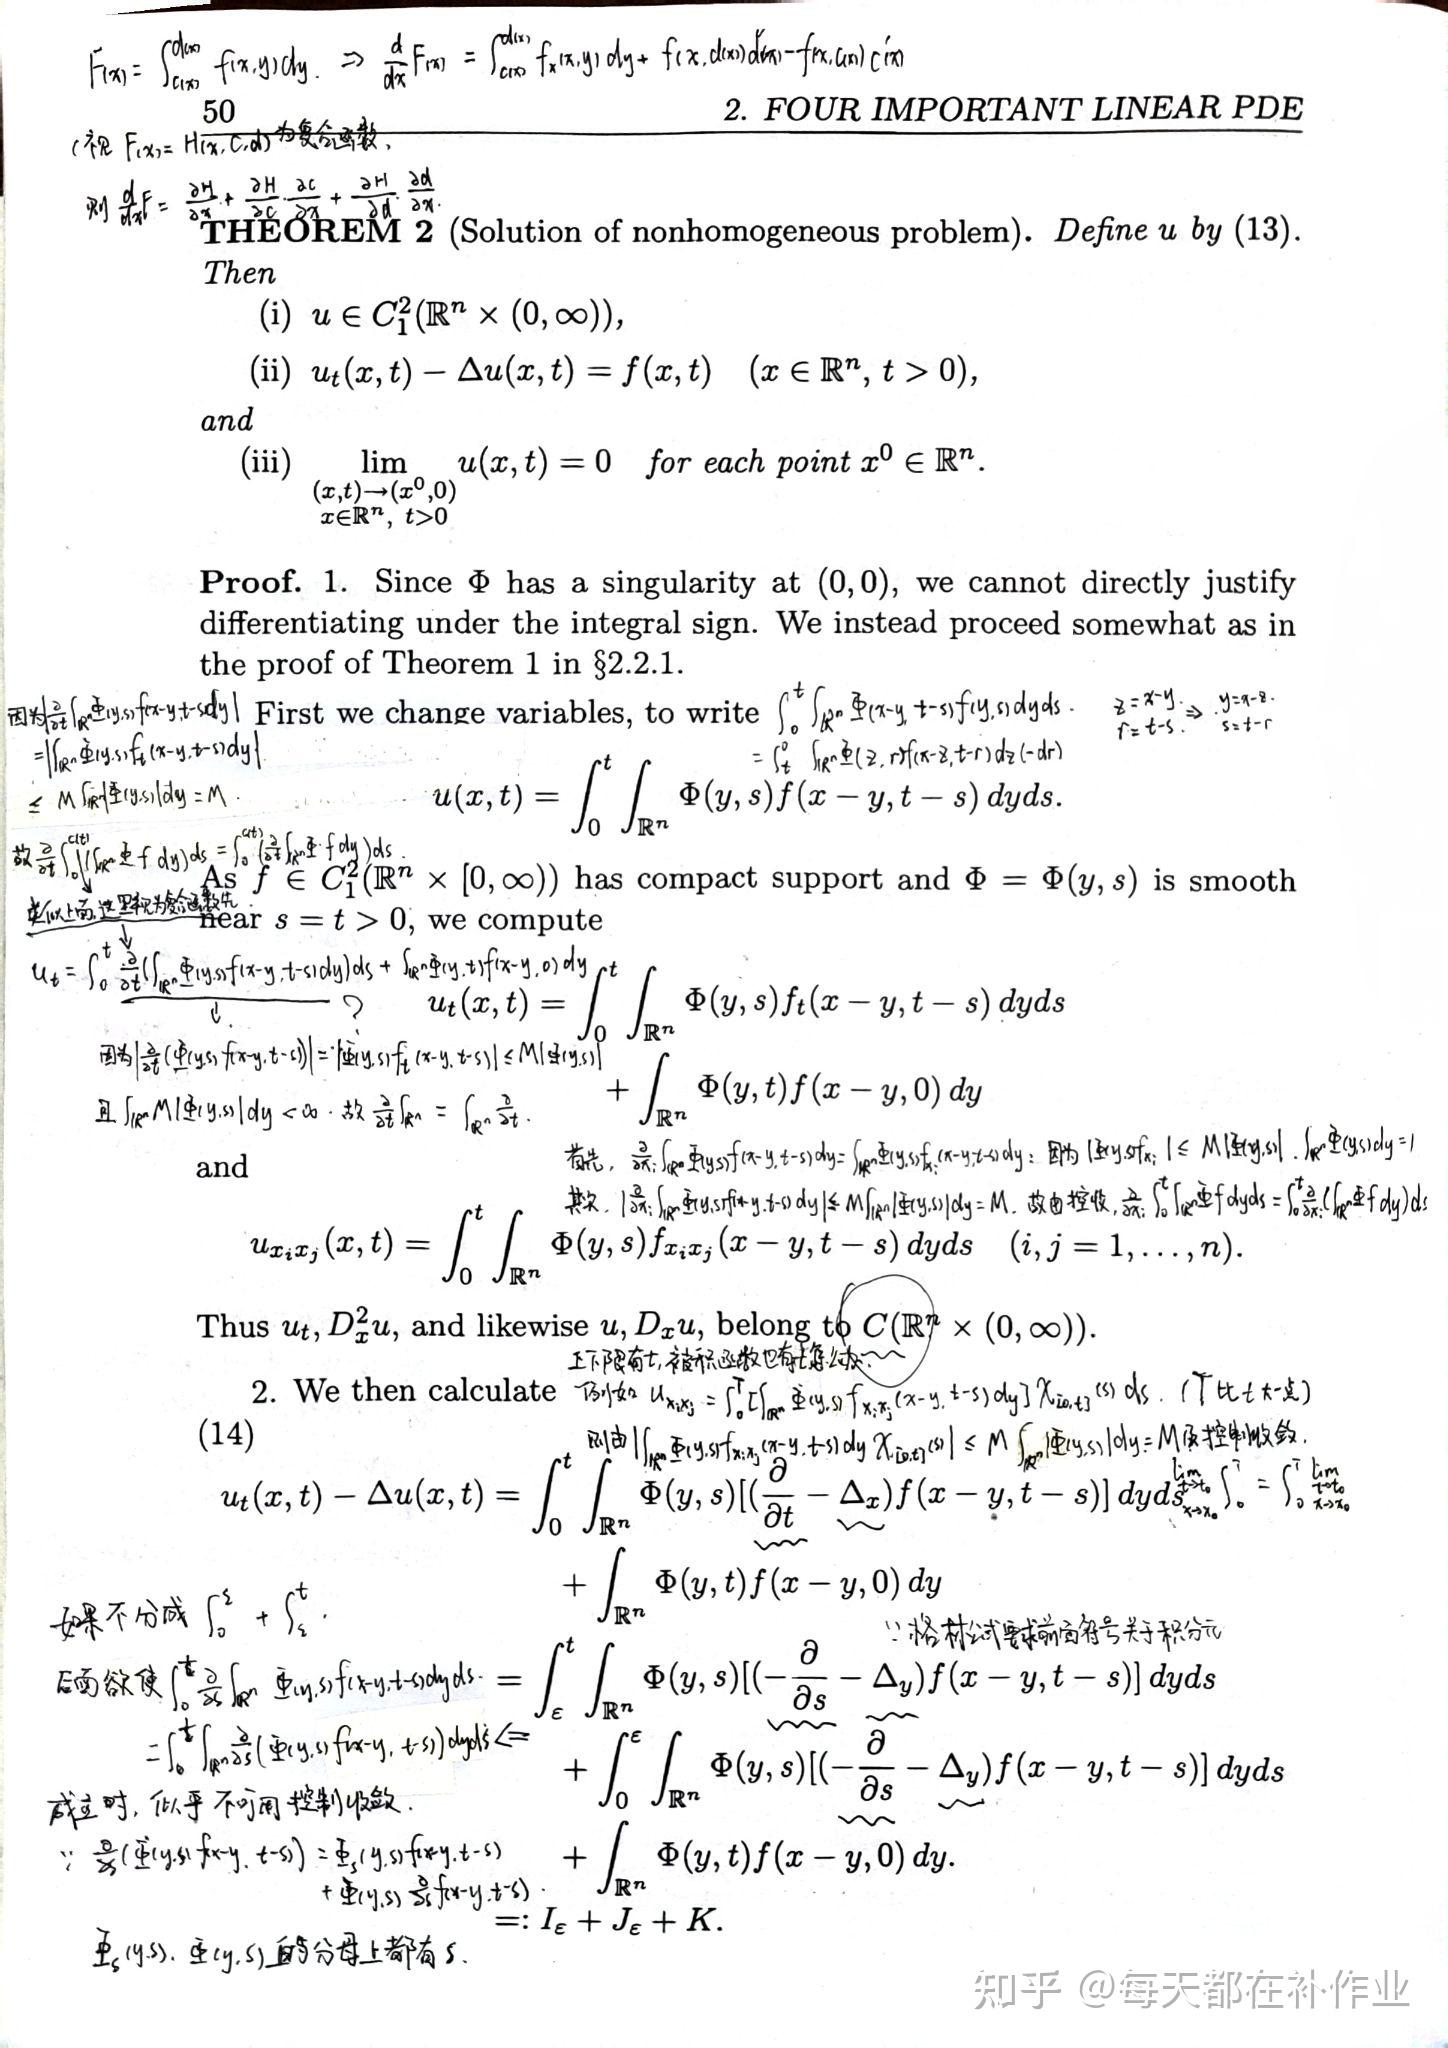 F(x) = ∫_{c(x)}^{d(x)} f(x,y)dy. ⇒ d/dx F(x) = ∫_{c(x)}^{d(x)} f_x(x,y)dy + f(x,d(x))d'(x) - f(x,c(x))c'(x)
50 2. FOUR IMPORTANT LINEAR PDE
(视 F(x) = H(x,c,d) 为复合函数,
则 d/dx F = ∂H/∂x + ∂H/∂c · ∂c/∂x + ∂H/∂d · ∂d/∂x.
THEOREM 2 (Solution of nonhomogeneous problem). Define u by (13).
Then
(i) u ∈ C₁²(ℝⁿ × (0, ∞)),
(ii) u_t(x, t) − Δu(x, t) = f(x, t) (x ∈ ℝⁿ, t > 0),
and
(iii) lim u(x, t) = 0 for each point x⁰ ∈ ℝⁿ.
(x,t)→(x⁰,0)
x∈ℝⁿ, t>0
Proof. 1. Since Φ has a singularity at (0, 0), we cannot directly justify
differentiating under the integral sign. We instead proceed somewhat as in
the proof of Theorem 1 in §2.2.1.
因为|∂/∂t ∫_{ℝⁿ} Φ(y,s)f(x-y,t-s)dy|
= |∫_{ℝⁿ} Φ(y,s)f_t(x-y,t-s)dy|
≤ M∫_{ℝⁿ}|Φ(y,s)|dy = M.
First we change variables, to write ∫_0^t ∫_{ℝⁿ} Φ(x-y,t-s)f(y,s)dyds. z=x-y. ⇒ y=x-z.
r=t-s. s=t-r
= ∫_t^0 ∫_{ℝⁿ} Φ(z,r)f(x-z,t-r)dz(-dr)
u(x, t) = ∫_0^t ∫_{ℝⁿ} Φ(y, s)f(x − y, t − s) dyds.
故 ∂/∂t ∫_0^{c(t)} (∫_{ℝⁿ} Φ f dy)ds = ∫_0^{c(t)} (∂/∂t ∫_{ℝⁿ} Φ·f dy)ds.
As f ∈ C₁²(ℝⁿ × [0, ∞)) has compact support and Φ = Φ(y, s) is smooth
类似上面,这里视为复合函数
near s = t > 0, we compute
u_t = ∫_0^t ∂/∂t(∫_{ℝⁿ} Φ(y,s)f(x-y,t-s)dy)ds + ∫_{ℝⁿ} Φ(y,t)f(x-y,0)dy
?
u_t(x, t) = ∫_0^t ∫_{ℝⁿ} Φ(y, s)f_t(x − y, t − s) dyds
因为|∂/∂t(Φ(y,s)f(x-y,t-s))| = |Φ(y,s)f_t(x-y,t-s)| ≤ M|Φ(y,s)|
+ ∫_{ℝⁿ} Φ(y, t)f(x − y, 0) dy
且 ∫_{ℝⁿ} M|Φ(y,s)|dy < ∞. 故 ∂/∂t ∫_{ℝⁿ} = ∫_{ℝⁿ} ∂/∂t.
首先, ∂/∂x_i ∫_{ℝⁿ} Φ(y,s)f(x-y,t-s)dy = ∫_{ℝⁿ} Φ(y,s)f_{x_i}(x-y,t-s)dy: 因为 |Φ(y,s)f_{x_i}| ≤ M|Φ(y,s)|. ∫_{ℝⁿ} Φ(y,s)dy=1
and
其次, |∂/∂x_i ∫_{ℝⁿ} Φ(y,s)f(x-y,t-s)dy| ≤ M∫_{ℝⁿ}|Φ(y,s)|dy = M. 故由控收, ∂/∂x_i ∫_0^t ∫_{ℝⁿ} Φ f dyds = ∫_0^t ∂/∂x_i(∫_{ℝⁿ} Φ f dy)ds
u_{x_i x_j}(x, t) = ∫_0^t ∫_{ℝⁿ} Φ(y, s)f_{x_i x_j}(x − y, t − s) dyds (i, j = 1, …, n).
Thus u_t, D_x²u, and likewise u, D_xu, belong to C(ℝⁿ × (0, ∞)).
上下限有t,被积函数也有t
2. We then calculate 例如 u_{x_i x_j} = ∫_0^T [∫_{ℝⁿ} Φ(y,s)f_{x_i x_j}(x-y,t-s)dy] χ_{[0,t]}(s) ds. (T比t大一点)
(14) 则由|∫_{ℝⁿ} Φ(y,s)f_{x_i x_j}(x-y,t-s)dy χ_{[0,t]}(s)| ≤ M∫_{ℝⁿ}|Φ(y,s)|dy = M及控制收敛.
u_t(x, t) − Δu(x, t) = ∫_0^t ∫_{ℝⁿ} Φ(y, s)[(∂/∂t − Δ_x)f(x − y, t − s)] dyds lim_{t→t₀, x→x₀} ∫_0^T = ∫_0^T lim_{t→t₀, x→x₀}
+ ∫_{ℝⁿ} Φ(y, t)f(x − y, 0) dy
如果不分成 ∫_0^ε + ∫_ε^t.
∵格林公式要求前面符号关于积分元
后面欲使 ∫_0^t ∂/∂s ∫_{ℝⁿ} Φ(y,s)f(x-y,t-s)dyds.
= ∫_ε^t ∫_{ℝⁿ} Φ(y, s)[(−∂/∂s − Δ_y)f(x − y, t − s)] dyds
= ∫_0^t ∫_{ℝⁿ} ∂/∂s(Φ(y,s)f(x-y,t-s))dyds ⇐
+ ∫_0^ε ∫_{ℝⁿ} Φ(y, s)[(−∂/∂s − Δ_y)f(x − y, t − s)] dyds
成立时, 似乎不可用控制收敛.
∵ ∂/∂s(Φ(y,s)f(x-y,t-s)) = Φ_s(y,s)f(x-y,t-s)
+ ∫_{ℝⁿ} Φ(y, t)f(x − y, 0) dy.
+ Φ(y,s) ∂/∂s f(x-y,t-s).
=: I_ε + J_ε + K.
Φ_s(y,s). Φ(y,s)的分母上都有s.
知乎 @每天都在补作业